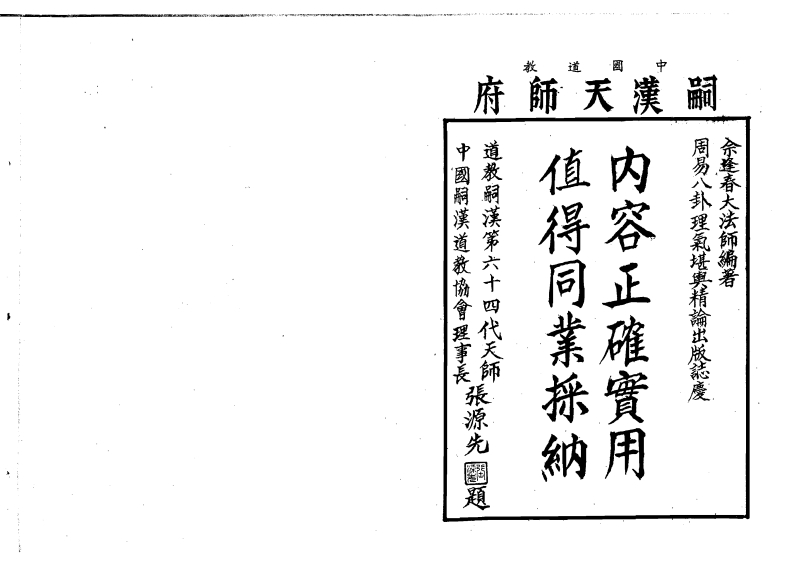 中國道教
嗣漢天師府
余逢春大法師編著
周易八卦理氣堪輿精論出版誌慶
內容正確實用
值得同業採納
道教嗣漢第六十四代天師
中國嗣漢道教協會理事長
張源先
題